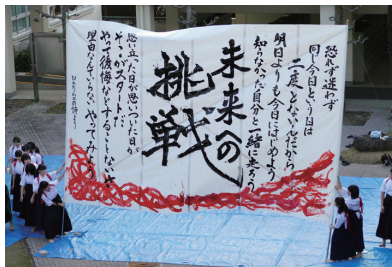 恐れず迷わず
同じ今日という日は
二度とないんだから
明日よりも今日にはじめよう
知らなかった自分と一緒に走ろう
未来への
挑戦
思い立った日が思いついた日が
そこがスタートだ
やって後悔などすることないさ
理由なんていらない やってみよう